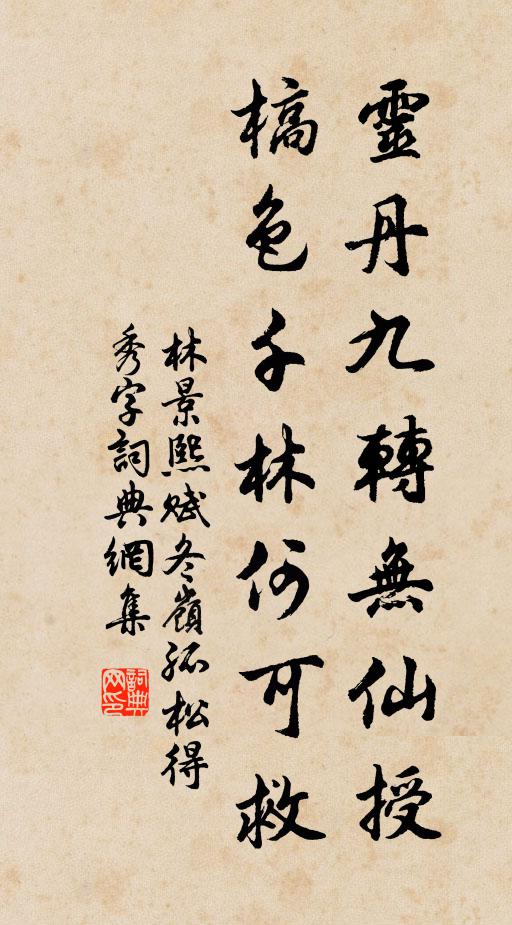 靈丹九轉無仙授
槁色千林何可救
林景熙賦冬嶺孤松得
秀字詞典網集
詞典
网印